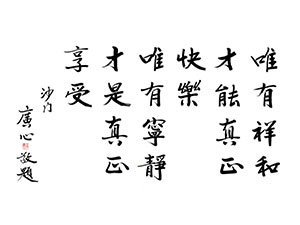 唯有祥和
才能真正
快樂
唯有寧靜
才是真正
享受
沙门
廣心敬題